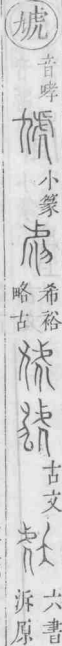 虓
音哮
小篆
希裕
略古
古文
六書
泝原